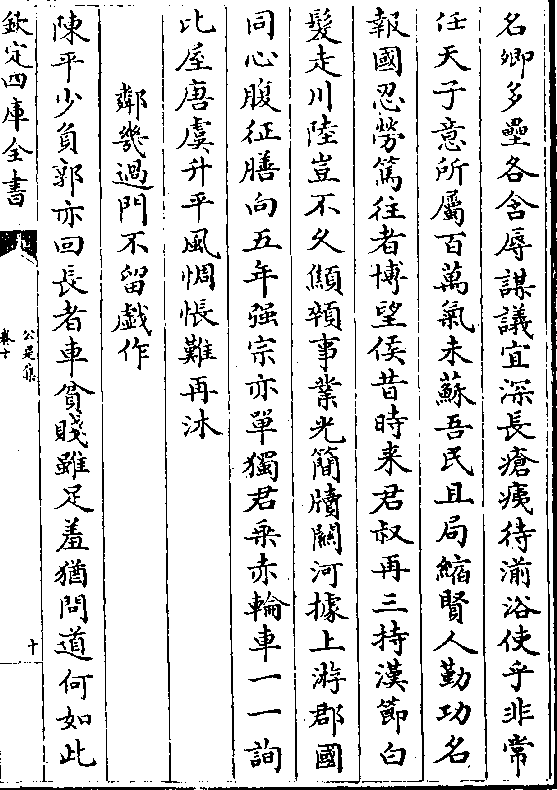 名卿多壘各含辱謀議宜深長瘡痍待湔浴使乎非常
任天子意所屬百萬氣未蘇吾民且局縮賢人勤功名
報國忍勞篤往者博望侯昔時来君叔再三持漢節白
髮走川陸豈不久顦顇事業光簡牘關河據上游郡國
同心腹征膳向五年强宗亦單獨君乘赤輪車一一詢
比屋唐虞升平風惆悵難再沐
鄰幾過門不留戲作
陳平少負郭亦回長者車貧賤雖足羞猶問道何如此
欽定四庫全書
公是集
卷十
十